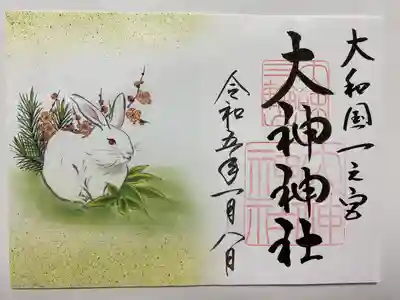 大和国一之宮
大神神社
令和五年一月八日